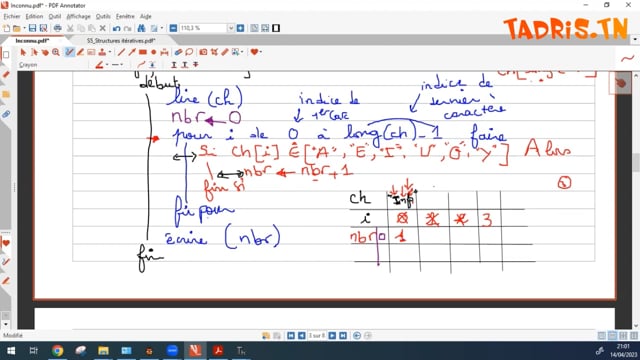 Inconnu.pdf* - PDF Annotator
TADRIS.TN
Fichier Édition Affichage Outil Document Fenêtre Aide
110,3 %
Inconnu.pdf* S5_Structures itératives.pdf*
Crayon
début
lire (ch)
nbr ← 0
indice de 1er car
indice de dernier caractère
pour i de 0 à long(ch)-1 faire
Si ch[i] ∈ ["A", "E", "I", "U", "O", "Y"] Alors
nbr ← nbr + 1
fin si
fin pour
écrire (nbr)
fin
ch "Inf"
i 0 1 2 3
nbr 0 1
3 sur 8
Modifié
21:01
14/04/2023